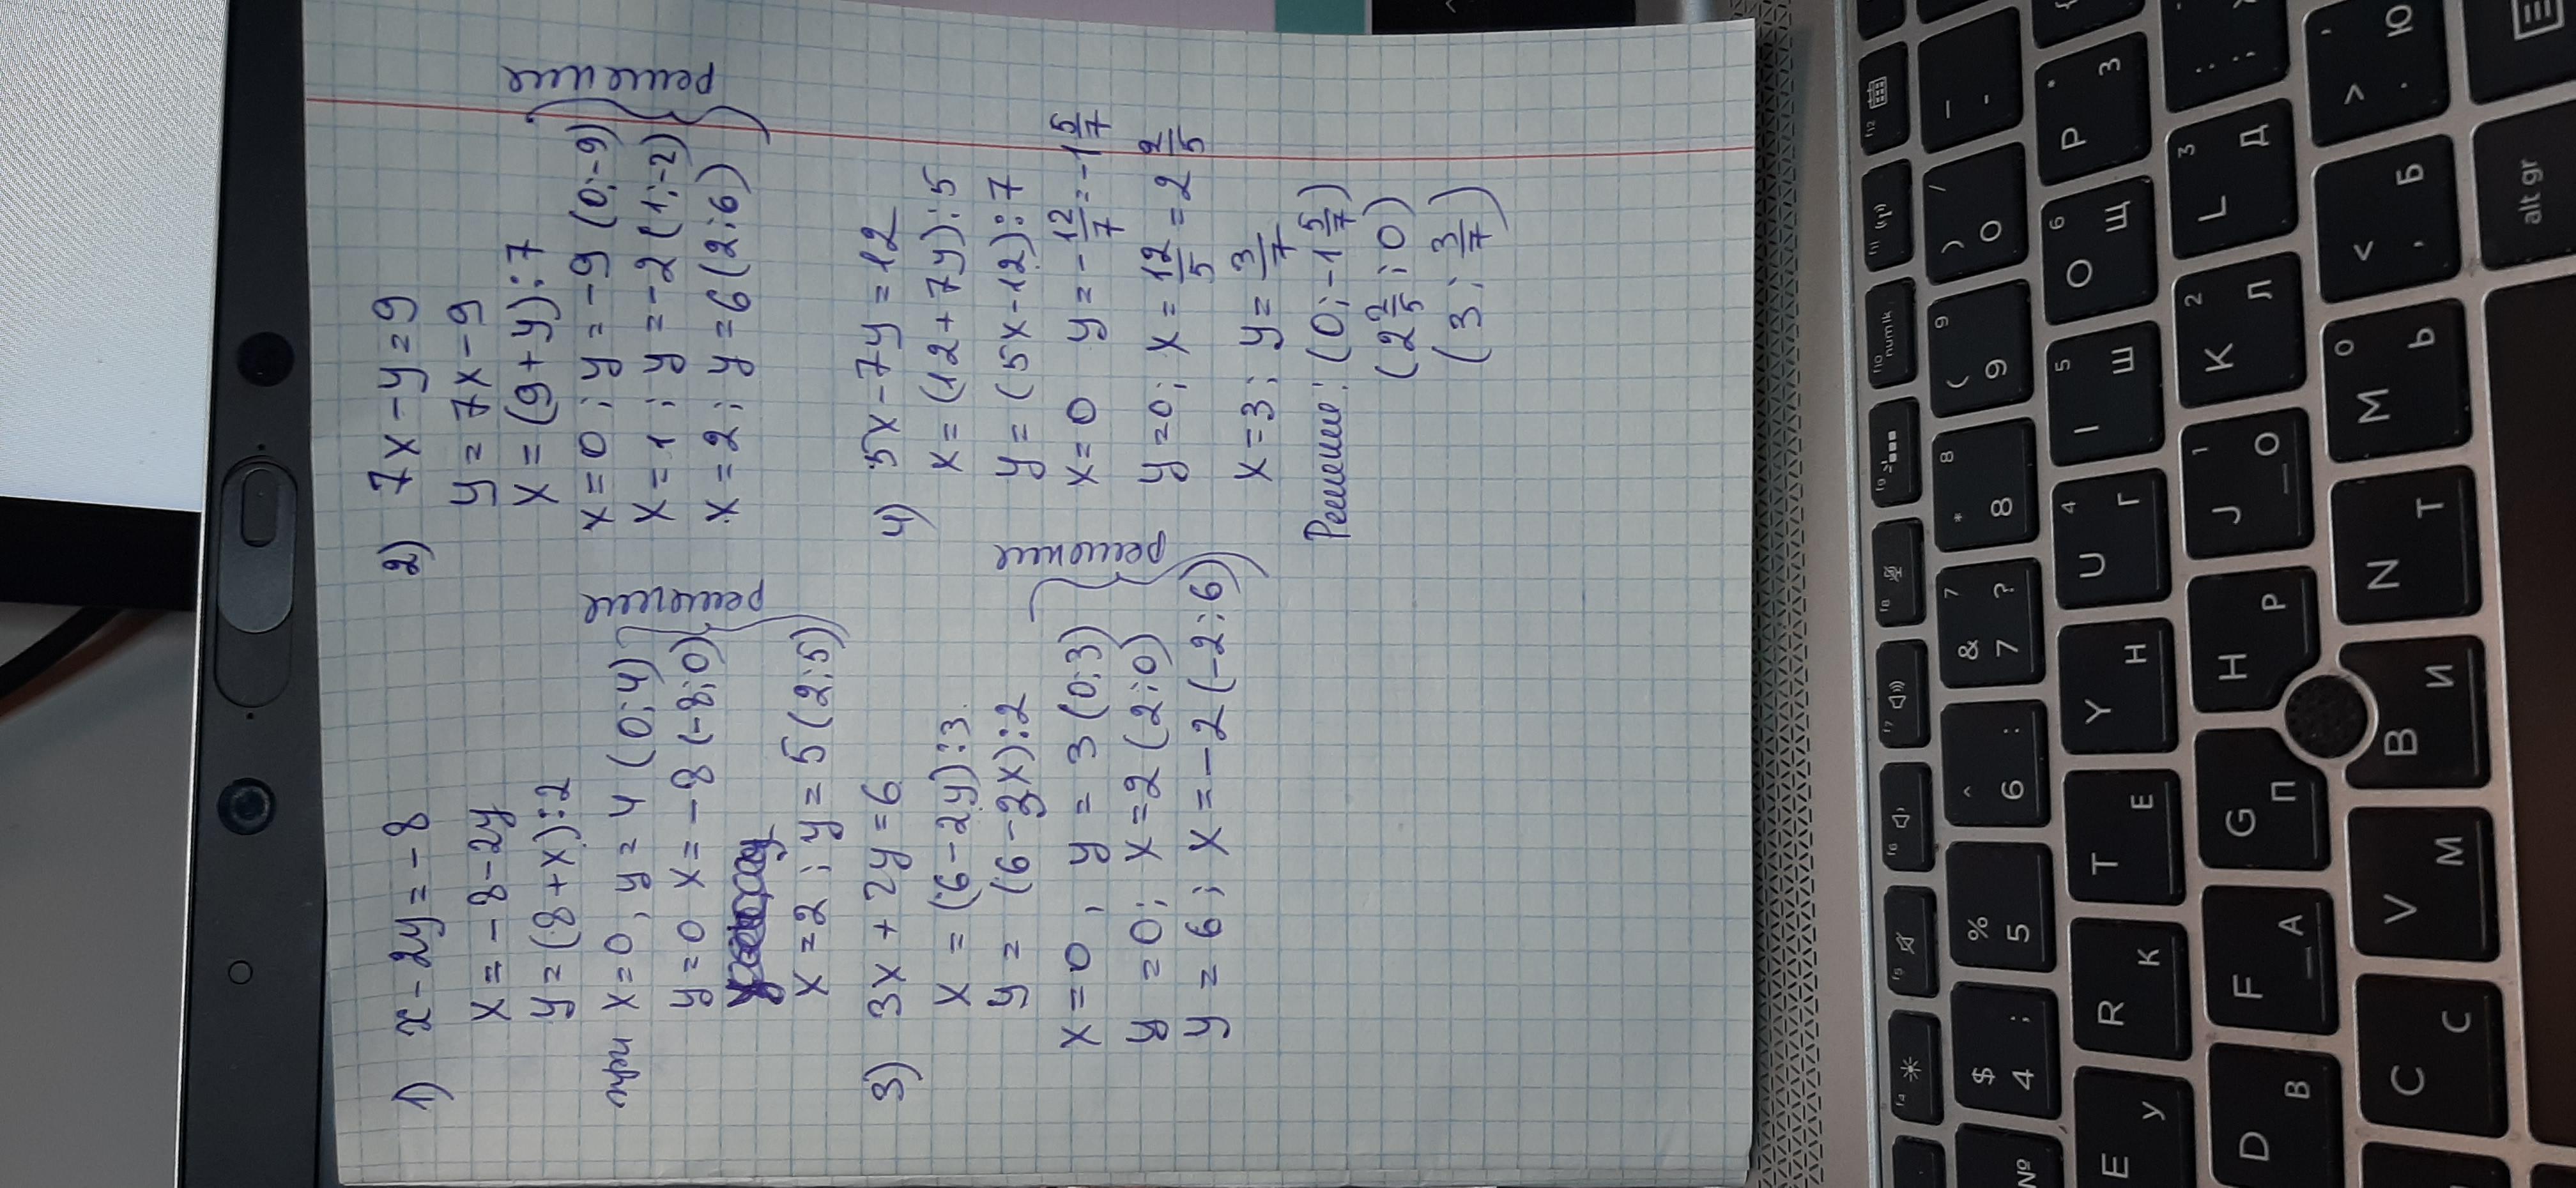 1) x - 2y = -8
x = -8 - 2y
y = (8 + x) : 2
при x = 0, y = 4 (0; 4)
y = 0 x = -8 (-8; 0)
x = 2 ; y = 5 (2; 5)
решение
2) 7x - y = 9
y = 7x - 9
x = (9 + y) : 7
x = 0 ; y = -9 (0; -9)
x = 1 ; y = -2 (1; -2)
x = 2 ; y = 6 (2; 6)
решение
3) 3x + 2y = 6
x = (6 - 2y) : 3
y = (6 - 3x) : 2
x = 0, y = 3 (0; 3)
y = 0; x = 2 (2; 0)
y = 6; x = -2 (-2; 6)
решение
4) 5x - 7y = 12
x = (12 + 7y) : 5
y = (5x - 12) : 7
x = 0 y = -12/7 = -1 5/7
y = 0; x = 12/5 = 2 2/5
x = 3; y = 3/7
Решение: (0; -1 5/7)
(2 2/5; 0)
(3; 3/7)
f4 f5 f6 f7 f8 f9 f10 numlk f11 f12
№ $ 4 ; % 5 ^ 6 : & 7 7 ? * 8 8 ( 9 9 ) 0 / _ -
E У R К T Е Y Н U 4 Г I 5 Ш O 6 Щ P * З
D В F А G П H Р J 1 О K 2 Л L 3 Д : ;
C С V М B И N Т M 0 Ь < , Б > . Ю
alt gr